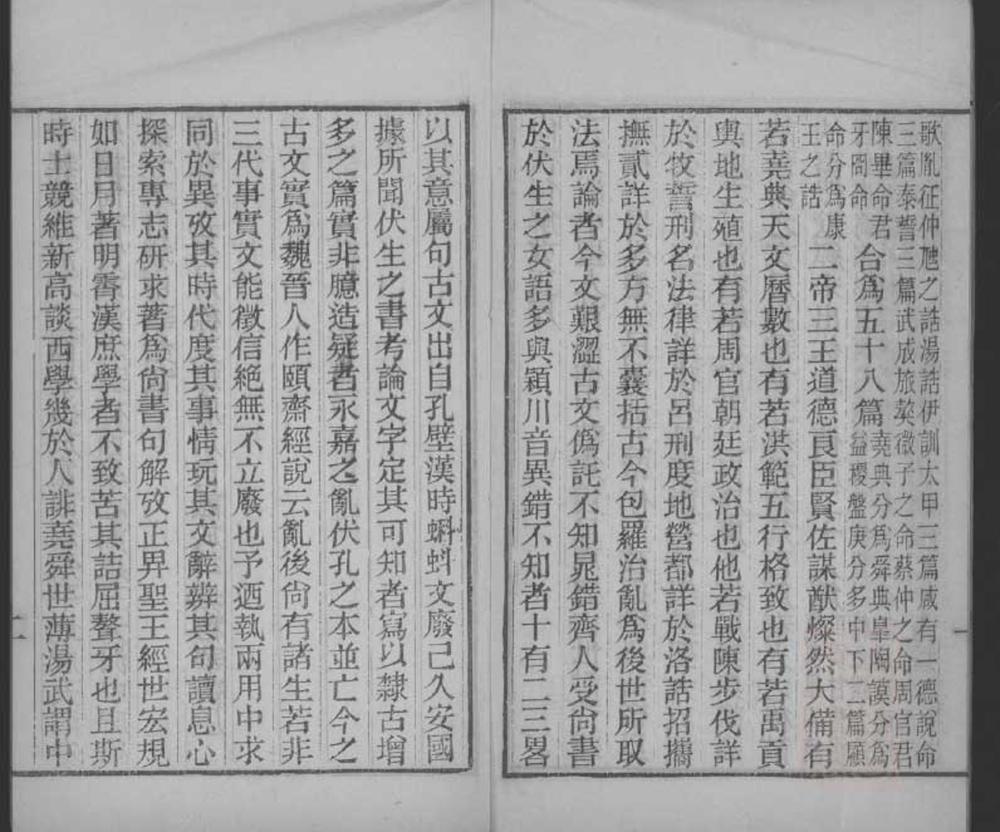 歌胤征仲虺之誥湯誥伊訓太甲三篇咸有一德說命
三篇泰誓三篇武成旅獒微子之命蔡仲之命周官君
陳畢命君牙冏命
合爲五十八篇
堯典分爲舜典皐陶謨分爲
益稷盤庚分多中下二篇顧
命分爲康
王之誥
二帝三王道德良臣賢佐謀猷燦然大備有
若堯典天文曆數也有若洪範五行格致也有若禹貢
輿地生殖也有若周官朝廷政治也他若戰陳步伐詳
於牧誓刑名法律詳於呂刑度地營都詳於洛誥招攜
撫貳詳於多方無不囊括古今包羅治亂爲後世所取
法焉論者今文艱澀古文僞託不知晁錯齊人受尙書
於伏生之女語多與潁川音異錯不知者十有二三畧
以其意屬句古文出自孔壁漢時蝌蚪文廢已久安國
據所聞伏生之書考論文字定其可知者寫以隸古增
多之篇實非臆造疑者永嘉之亂伏孔之本並亡今之
古文實爲魏晉人作頤齋經說云亂後尙有諸生若非
三代事實文能徵信絕無不立廢也予迺執兩用中求
同於異攷其時代度其事情玩其文辭辨其句讀息心
探索專志硏求著爲尙書句解攷正畀聖王經世宏規
如日月著明霄漢庶學者不致苦其詰屈聱牙也且斯
時士競維新高談西學幾於人誹堯舜世薄湯武謂中